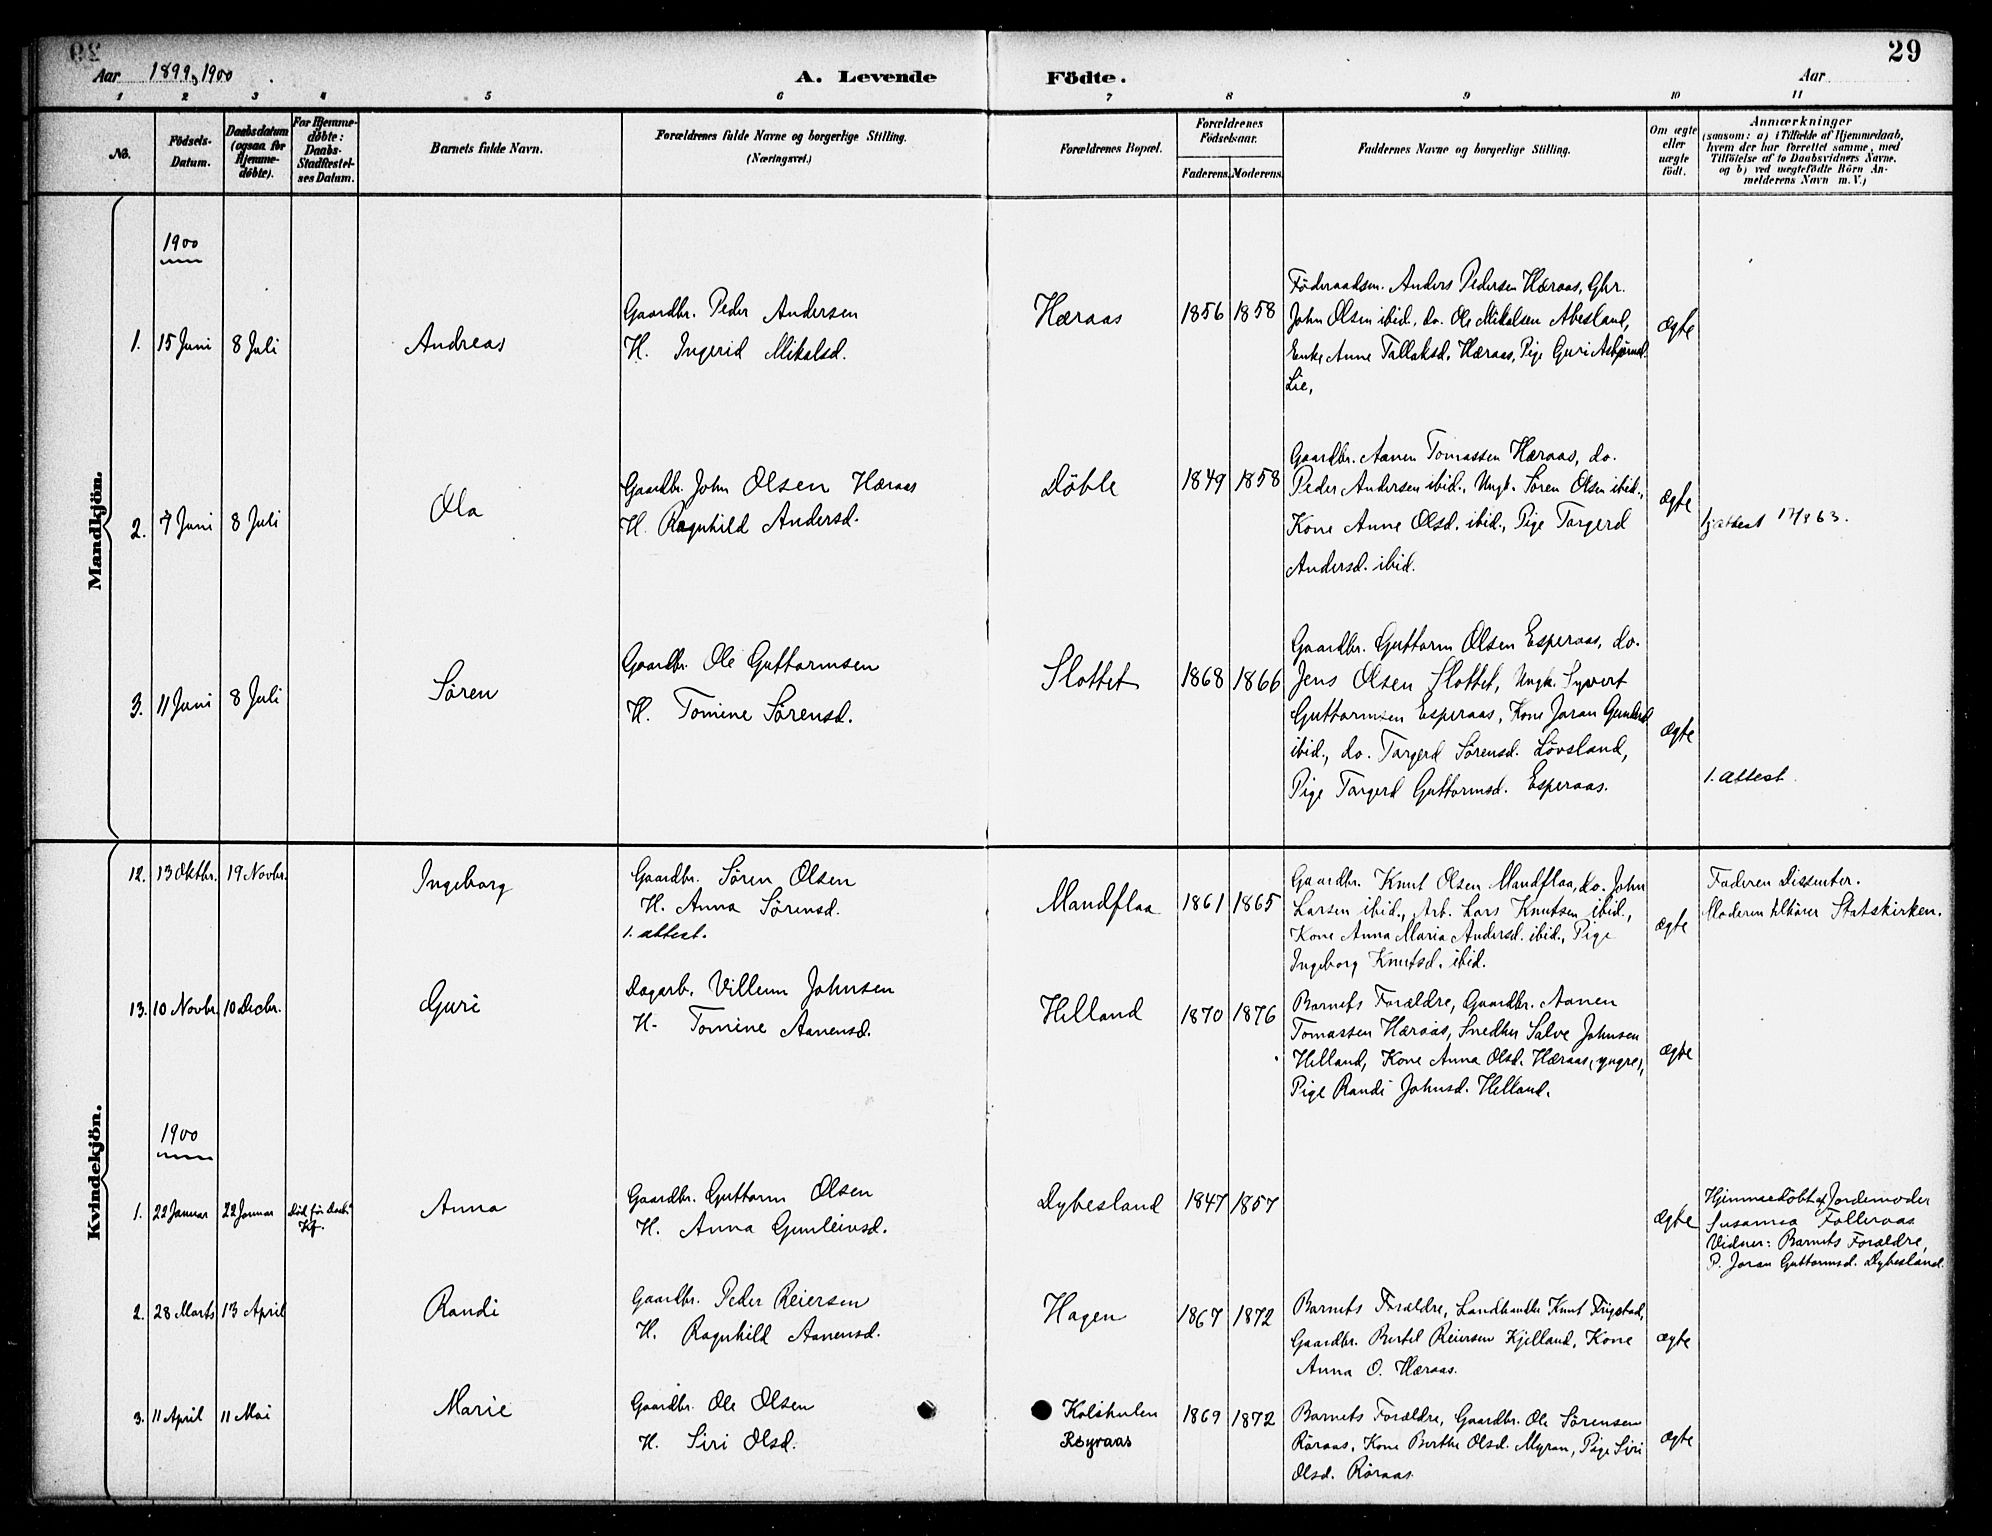 29
Aar 1899, 1900
A. Levende Födte.
Aar
1 2 3 4 5 6 7 8 9 10 11
No.
Födsels-Datum.
Daabsdatum (ogsaa for Hjemme-døbte).
For Hjemme-døbte: Daabs-Stadfæstel-ses Datum.
Barnets fulde Navn.
Forældrenes fulde Navne og borgerlige Stilling.
(Næringsvei.)
Forældrenes Bopæl.
Forældrenes Födselsaar.
Faderens. Moderens.
Faddernes Navne og borgerlige Stilling.
Om ægte eller uægte födt.
Anmærkninger
(saasom: a) i Tilfælde af Hjemmedaab,
hvem der har forrettet samme, med
Tilföielse af to Daabsvidners Navne.
og b) ved uægtefödte Börn An-
melderens Navn m. V.)
Mandkjön.
1900
1. 15 Juni 8 Juli Andreas
Gaardbr. Peder Andersen
H. Ingerid Mikalsd.
Hæraas 1856 1858
Föderaadsm. Anders Pedersen Hæraas, Gbr.
John Olsen ibid., do. Ole Mikalsen Abesland,
Enke Anne Tallaksd. Hæraas, Pige Guri Asbjørnsd.
Lie,
ægte
2. 7 Juni 8 Juli Ola
Gaardbr. John Olsen Hæraas
H. Ragnhild Andersd.
Döble 1849 1858
Gaardbr. Aanen Tomassen Hæraas, do.
Peder Andersen ibid., Ungk. Sören Olsen ibid.,
Kone Anne Olsd. ibid., Pige Targerd
Andersd. ibid.
ægte
attest 17/8 63.
3. 11 Juni 8 Juli Sören
Gaardbr. Ole Guttormsen
H. Tomine Sörensd.
Slottet 1868 1866
Gaardbr. Guttorm Olsen Esperaas, do.
Jens Olsen Slottet, Ungk. Syvert
Guttormsen Esperaas, Kone Joran Gunleiksd.
ibid., do. Targerd Sörensd. Lövsland,
Pige Targerd Guttormsd. Esperaas.
ægte
1. attest.
Kvindekjön.
12. 13 Oktbr. 19 Novbr. Ingeborg
Gaardbr. Sören Olsen
H. Anna Sörensd.
1. attest.
Mandflaa 1861 1865
Gaardbr. Knut Olsen Mandflaa, do. John
Larsen ibid., Arb. Lars Knutsen ibid.,
Kone Anna Maria Andersd. ibid., Pige
Ingeborg Knutsd. ibid.
ægte
Faderen Dissenter.
Moderen tilhører Statskirken.
13. 10 Novbr. 10 Decbr. Guri
Dagarb. Villum Johnsen
H. Tomine Aanensd.
Helland 1870 1876
Barnets Forældre, Gaardbr. Aanen
Tomassen Hæraas, Snedker Salve Johnsen
Helland, Kone Anna Olsd. Hæraas (yngre),
Pige Randi Johnsd. Helland.
ægte
1900
1. 22 Januar 22 Januar Död før Anna
Gaardbr. Guttorm Olsen
H. Anna Gunleivsd.
Dybesland 1847 1857
ægte
Hjemmedöbt af Jordemoder
Susanna Folleraas
Vidner: Barnets Forældre,
P. Joran Guttormsd. Dybesland.
2. 28 Marts 13 April Randi
Gaardbr. Peder Reiersen
H. Ragnhild Aanensd.
Hagen 1867 1872
Barnets Forældre, Landhandler Knut Frigstad,
Gaardbr. Bertel Reiersen Kjelland, Kone
Anna O. Hæraas.
ægte
3. 11 April 11 Mai Marie
Gaardbr. Ole Olsen
H. Siri Olsd.
Kolshulen
Röyraas
1869 1872
Barnets Forældre, Gaardbr. Ole Sörensen
Röraas, Kone Berthe Olsd. Myran, Pige Siri
Olsd. Röraas
ægte